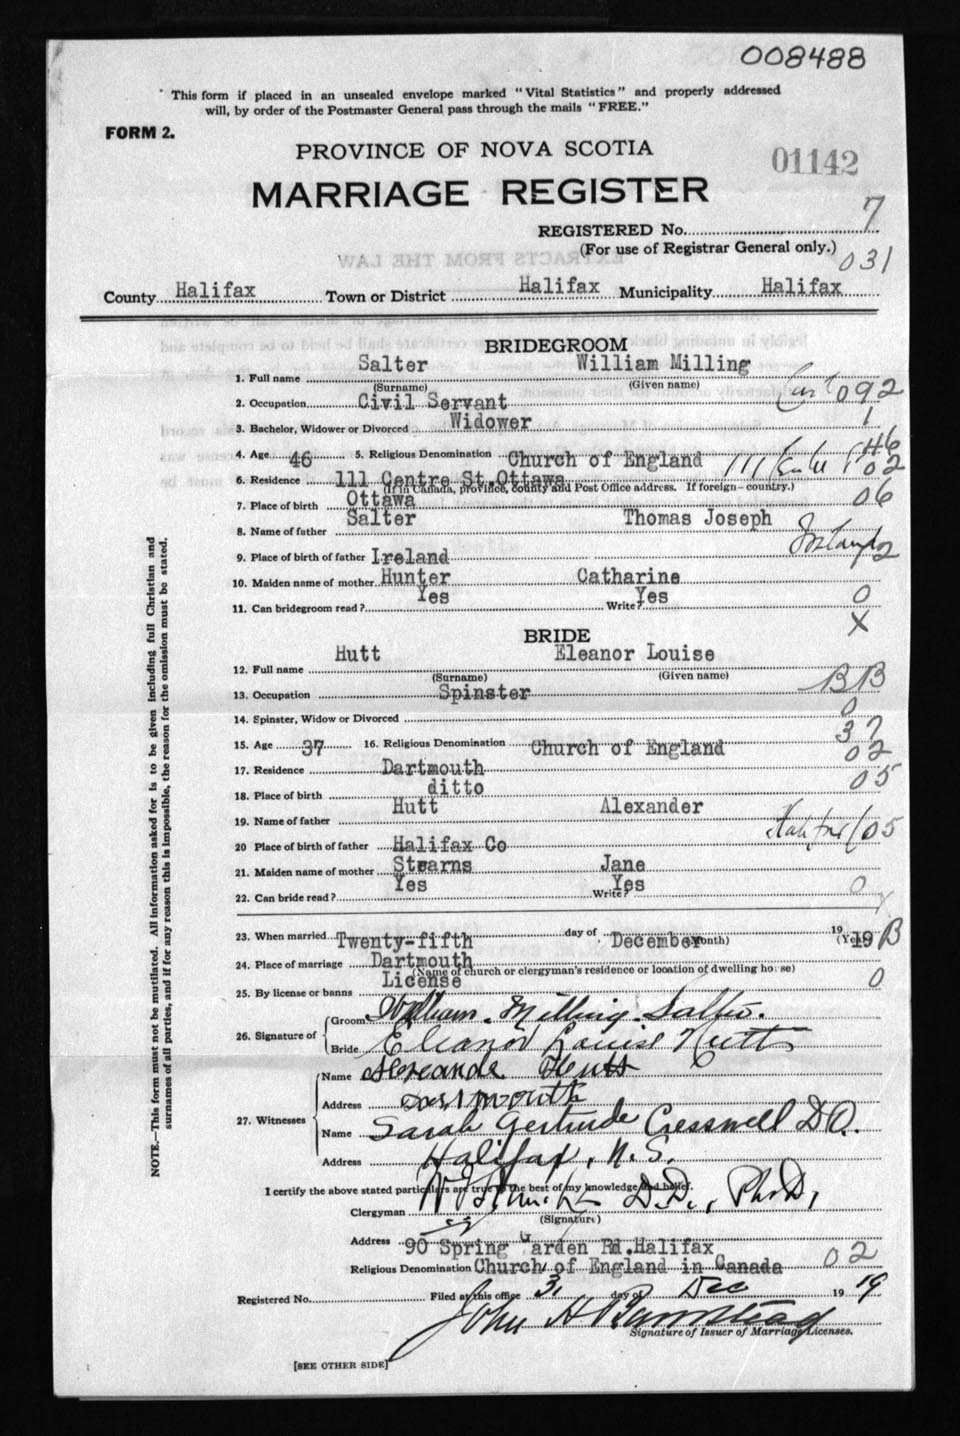 008488
This form if placed in an unsealed envelope marked "Vital Statistics" and properly addressed
will, by order of the Postmaster General pass through the mails "FREE."
FORM 2.
PROVINCE OF NOVA SCOTIA
01142
MARRIAGE REGISTER
REGISTERED No. 7
(For use of Registrar General only.)
031
County Halifax Town or District Halifax Municipality Halifax
BRIDEGROOM
1. Full name Salter William Milling
(Surname) (Given name)
2. Occupation Civil Servant 092
3. Bachelor, Widower or Divorced Widower 1
4. Age 46 5. Religious Denomination Church of England 46
02
6. Residence 111 Centre St. Ottawa
(If in Canada, province, county and Post Office address. If foreign—country.)
7. Place of birth Ottawa 06
8. Name of father Salter Thomas Joseph
9. Place of birth of father Ireland 2
10. Maiden name of mother Hunter Catharine
11. Can bridegroom read? Yes Write? Yes 0
X
BRIDE
12. Full name Hutt Eleanor Louise
(Surname) (Given name)
13. Occupation Spinster BB
14. Spinster, Widow or Divorced 0
15. Age 37 16. Religious Denomination Church of England 37
02
17. Residence Dartmouth
18. Place of birth ditto 05
19. Name of father Hutt Alexander
20 Place of birth of father Halifax Co Halifax 05
21. Maiden name of mother Stearns Jane
22. Can bride read? Yes Write? Yes 0
X
23. When married Twenty-fifth day of December (Month) 19 19 (Year) B
24. Place of marriage Dartmouth
(Name of church or clergyman's residence or location of dwelling house)
25. By license or banns License 0
26. Signature of Groom William Milling Salter.
Bride Eleanor Louise Hutt
27. Witnesses Name Alexander Hutt
Address Dartmouth
Name Sarah Gertrude Cresswell D.O.
Address Halifax, N.S.
I certify the above stated particulars are true to the best of my knowledge and belief.
Clergyman D.D., Ph.D,
(Signature)
Address 90 Spring Garden Rd. Halifax
Religious Denomination Church of England in Canada 02
Registered No. Filed at this office 31 day of Dec 19 19
John H Barnstead
Signature of Issuer of Marriage Licenses.
[SEE OTHER SIDE]
NOTE.—This form must not be mutilated. All information asked for is to be given including full Christian and
surnames of all parties, and if for any reason this is impossible, the reason for the omission must be stated.